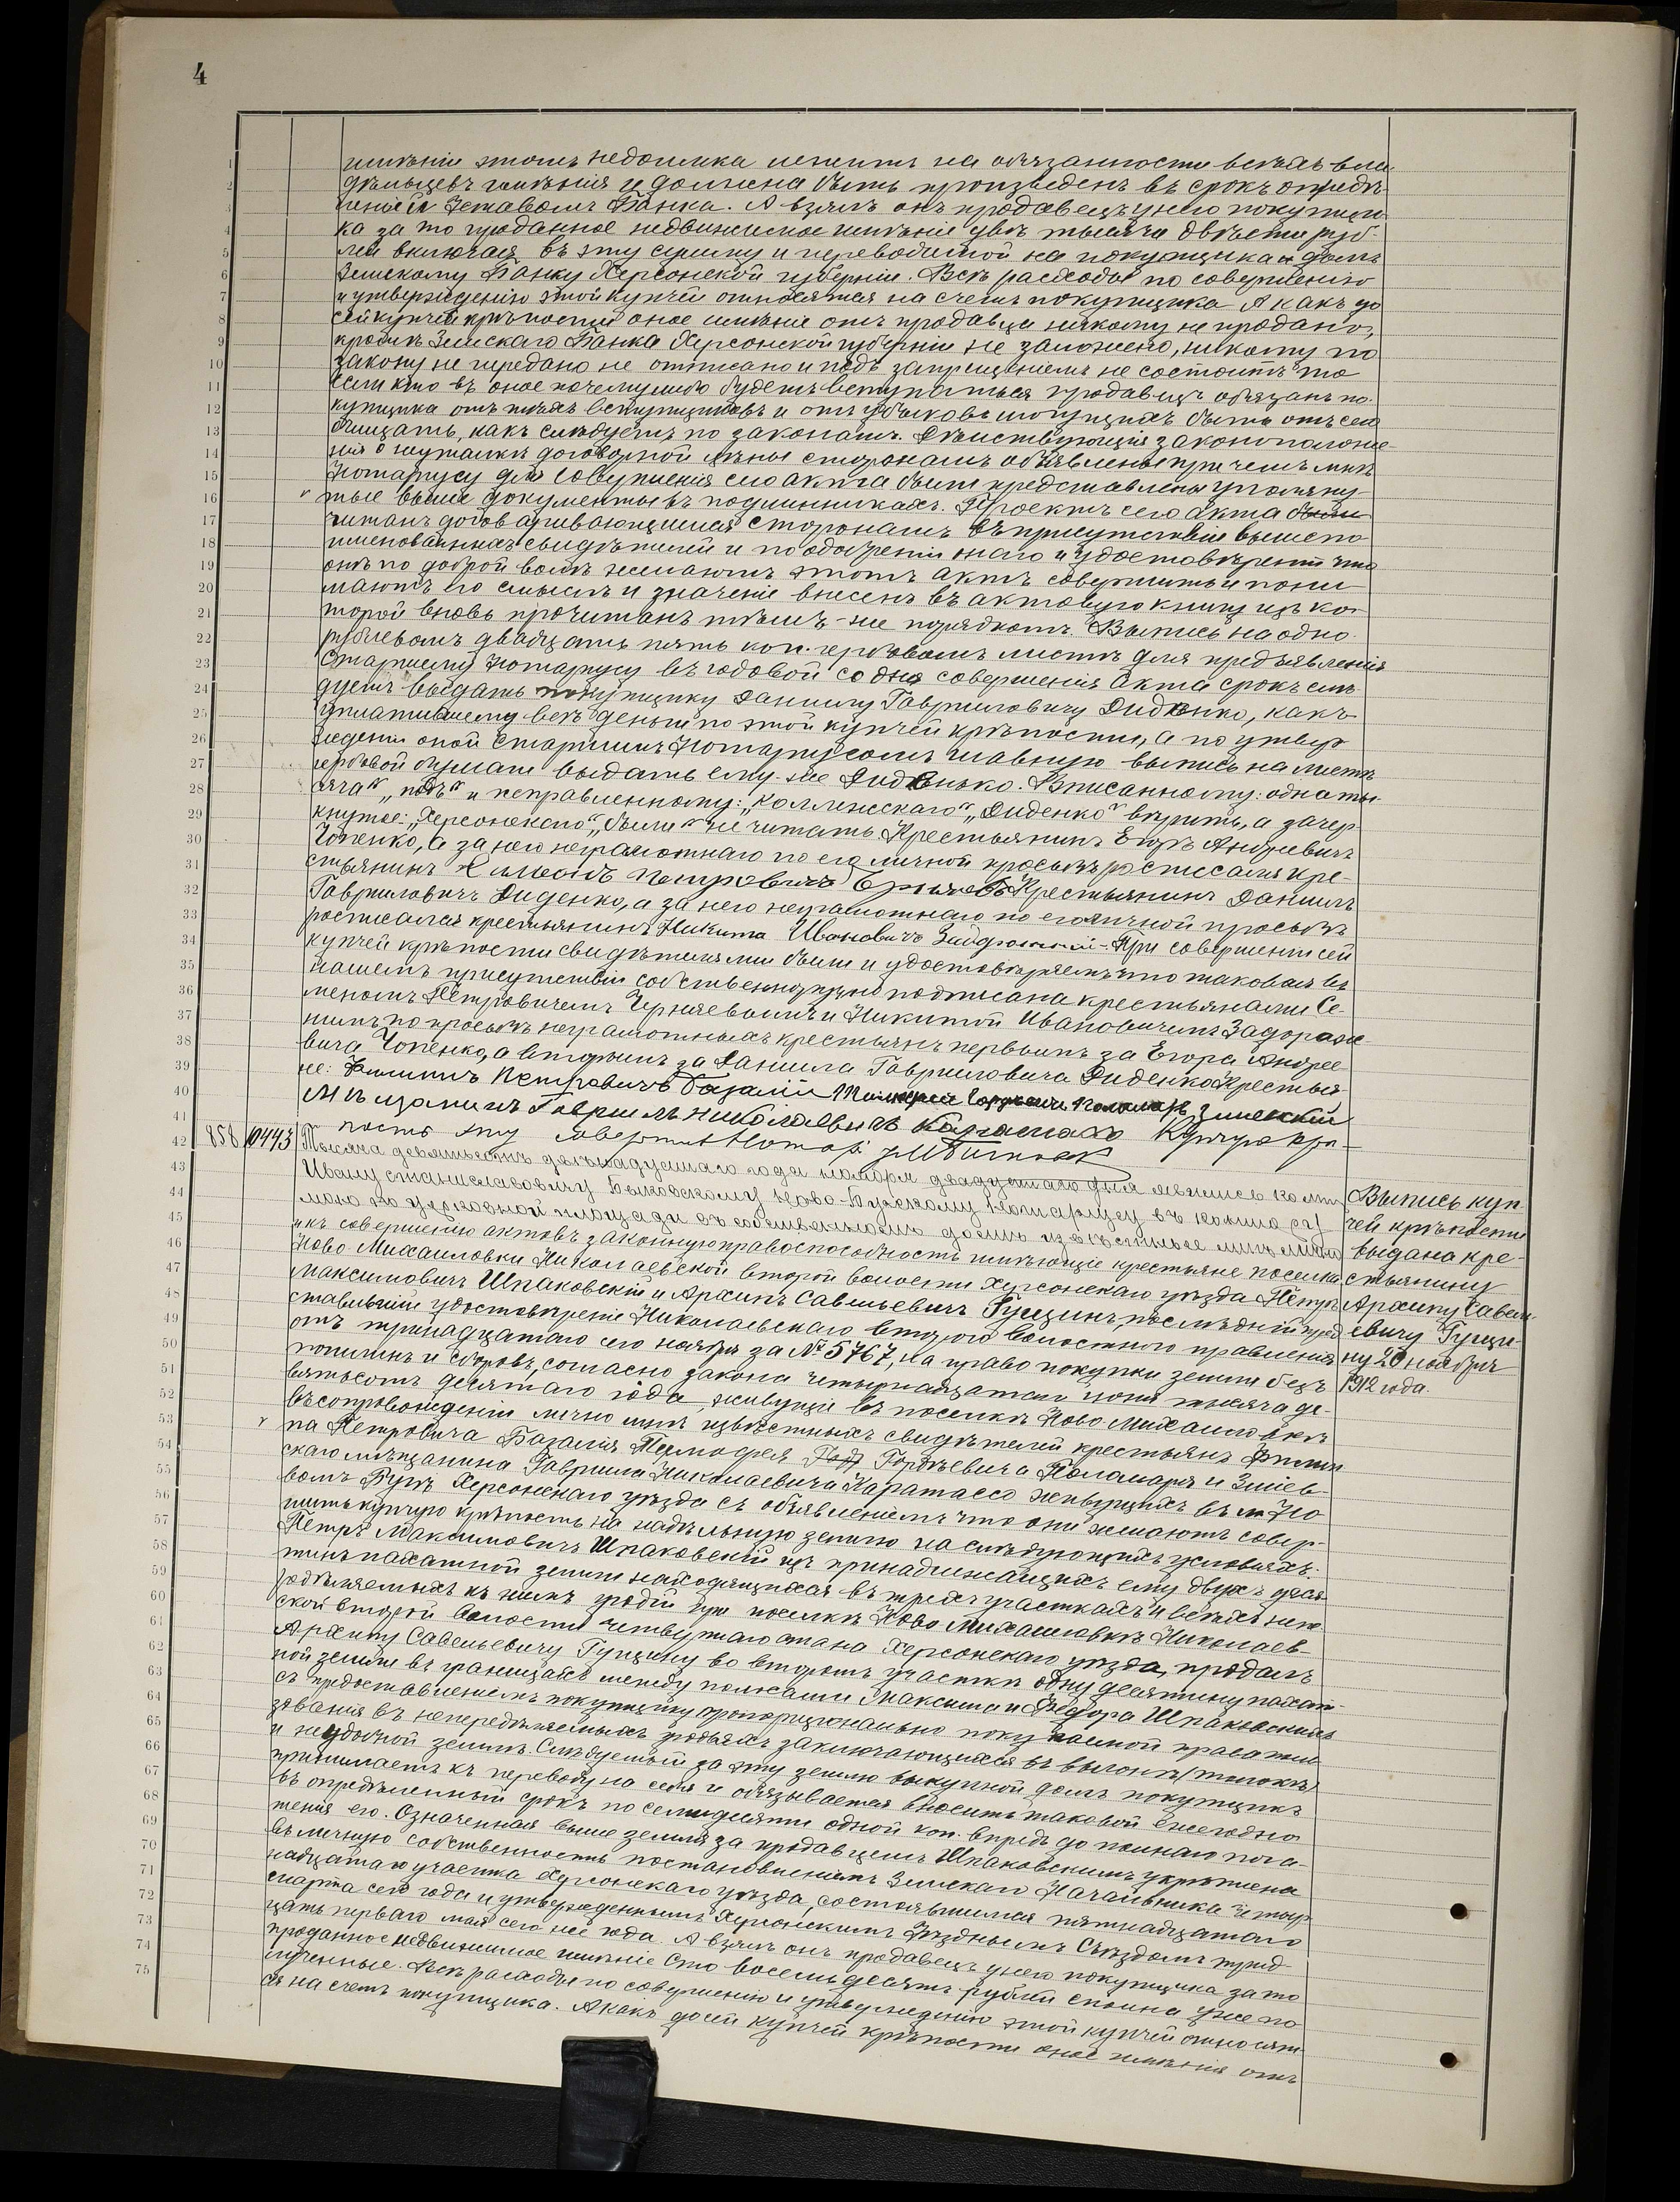 4
имѣніи этомъ недоимка лежитъ на обязанности всѣхъ вла
дѣльцевъ имѣнія и должна быть произведенъ въ срокъ опредѣ
леніе Уставомъ Банка. А взялъ онъ продавецъ у него покупщи
ка за то проданное недвижимое имѣніе двѣ тысячи двѣсти руб-
лей включая въ эту сумму и переводимой на покупщика долгъ
Земскому Банку Херсонской губерніи. Всѣ расходы по совершенію
и утвержденію этой купчей относятся на счетъ покупщика. А какъ до
сей купчей крѣпости оное имѣніе отъ продавца никому не продано,
кромѣ Земскаго Банка Херсонской губерніи не заложено, никому по
закону не передано не отписано и подъ запрещеніемъ не состоитъ то
если кто въ оное почему либо будетъ вступаться продавецъ обязанъ по-
купщика отъ тѣхъ вступщиковъ и отъ убытковъ могущихъ быть отъ сего
очищать, какъ слѣдуетъ по законамъ. Дѣйствующія законоположе
нія о неустойкѣ договорной цѣны сторонамъ объявлены при чемъ мнѣ
Нотаріусу для совершенія сего акта были представлены упомяну-
тые выше документы въ подлинникахъ. Проектъ сего акта были
читанъ договаривающимся сторонамъ въ присутствіи вышепо
именованныхъ свидѣтелей и по одобреніи онаго и удостовѣреніи что
они по доброй волѣ желаютъ этотъ актъ совершить и пони
маютъ его смыслъ и значеніе внесенъ въ актовую книгу изъ ко-
торой вновь прочитанъ тѣмъ-же порядкомъ. Выпись на одно
рублевомъ двадцать пять коп. гербовомъ листѣ для предъявленія
Старшему Нотаріусу въ годовой со дня совершенія акта срокъ слѣ
дуетъ выдать покупщику Даніилу Гавриловичу Диденко, какъ
уплатившему всѣ деньги по этой купчей крѣпости, а по утвер
жденіи оной Старшимъ Нотаріусомъ главную выпись на листѣ
гербовой бумаги выдать ему-же Диденко. Вписанному: одна ты-
сяча", "подъ" и исправленному: "Коллежскаго", "Диденко" вѣрить, а зачер-
кнутое: "Херсонскаго", "были" не читать. Крестьянинъ Егоръ Андреевичъ
Чопенко, а за него неграмотнаго по его личной просьбѣ росписался кре-
стьянинъ Симеонъ Петровичъ Черняевъ Крестьянинъ Даніилъ
Гавриловичъ Диденко, а за него неграмотнаго по его личной просьбѣ
росписался крестьянинъ Никита Ивановичъ Задорожній - При совершеніи сей
купчей крѣпости свидѣтелями были и удостовѣряемъ что таковая въ
нашемъ присутствіи собственноручно подписана крестьянами Се-
меномъ Петровичемъ Черняевымъ и Никитой Ивановичемъ Задорож-
нимъ по просьбѣ неграмотныхъ крестьянъ первымъ за Егора Андрее-
вича Чопенко, а вторымъ за Даніила Гавриловича Диденко Крестья-
не: Филиппъ Петровичъ Базалій Тимофей Гордѣевичъ Паламарь Зміевскій
Мѣщанинъ Гавріилъ Николаевичъ Каратассо Купчую крѣ-
пость эту совершилъ Нотар.
858 10443 Тысяча девятьсотъ двѣнадцатаго года ноября двадцатаго дня явились ко мнѣ
Ивану Станиславовичу Быковскому Ново-Бугскому Нотаріусу въ контору
мою на церковной площади въ собственномъ домѣ извѣстные мнѣ лично
и къ совершенію актовъ законную правоспособность имѣющіе крестьяне поселка
Ново Михайловки Николаевской второй волости Херсонскаго уѣзда Петръ
Максимовичъ Шпаковскій и Архипъ Савельевичъ Гущинъ, послѣдній пред
ставившій удостовѣреніе Николаевскаго второго волостного правленія
отъ тринадцатаго сего ноября за № 5767, на право покупки земли безъ
пошлинъ и сборовъ, согласно закона четырнадцатаго іюня тысяча де-
вятьсотъ десятаго года, живущіе въ поселкѣ Ново Михайловкѣ
въ сопровожденіи лично мнѣ извѣстныхъ свидѣтелей крестьянъ Филип
па Петровича Базалія Тимофея Гордѣевича Паламаря и Зміев-
скаго мѣщанина Гавріила Николаевича Каратассо живущихъ въ м. Но
вомъ Бугѣ Херсонскаго уѣзда съ объявленіемъ что они желаютъ совер-
шить купчую крѣпость на надѣльную землю на слѣдующихъ условіяхъ:
Петръ Максимовичъ Шпаковскій изъ принадлежащихъ ему двухъ деся-
тинъ пахатной земли находящихся въ трехъ участкахъ и всѣхъ непе
редѣляемыхъ къ нимъ угодій при поселкѣ Ново Михайловкѣ Николаев-
ской второй волости четвертаго стана Херсонскаго уѣзда, продалъ
Архипу Савельевичу Гущину во второмъ участкѣ одну десятину пахат-
ной земли въ границахъ между полосами Максима и Федора Шпаковскихъ
съ предоставленіемъ покупщику пропорціонально покупаемой права поль
зованія въ непередѣляемыхъ угодьяхъ заключающихся въ выгонѣ (толокѣ)
и неудобной землѣ. Слѣдуемый за эту землю выкупной долгъ покупщикъ
принимаетъ къ переводу на себя и обязывается вносить таковой ежегодно
въ опредѣленный срокъ по семидесяти одной коп. впредь до полнаго пога-
шенія его. Означенная выше земля за продавцемъ Шпаковскимъ укрѣплена
въ личную собственность постановленіемъ Земскаго Начальника четыр
надцатаго участка Херсонскаго уѣзда, состоявшимся пятнадцатаго
марта сего года и утвержденнымъ Херсонскимъ Уѣзднымъ Съѣздомъ трид-
цать перваго мая сего же года. А взялъ онъ продавецъ у него покупщика за то
проданное недвижимое имѣніе сто восемьдесятъ рублей сполна уже по
лученные. Всѣ расходы по совершенію и утвержденію этой купчей относят
ся на счетъ покупщика. А какъ до сей купчей крѣпости оное имѣніе отъ
Выпись куп-
чей крѣпости
выдана кре-
стьянину
Архипу Савель-
евичу Гущи-
ну 20 ноября
1912 года.